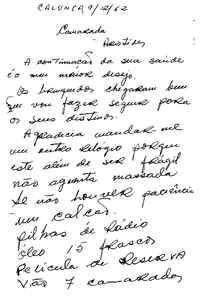 CALUNGA 9/12/62
Camarada
Aristides
A continuação da sua saúde
é o meu maior desejo.
Os brinquedos chegaram bem
que vou fazer seguir para
os seus destinos.
Agradecia mandar-me
um outro relógio porque
este além de ser frágil
não aguenta massada
Se não houver paciência
umas calças.
Pilhas de Rádio
óleo 15 frascos
Película de RESERVA
Vão 7 camaradas